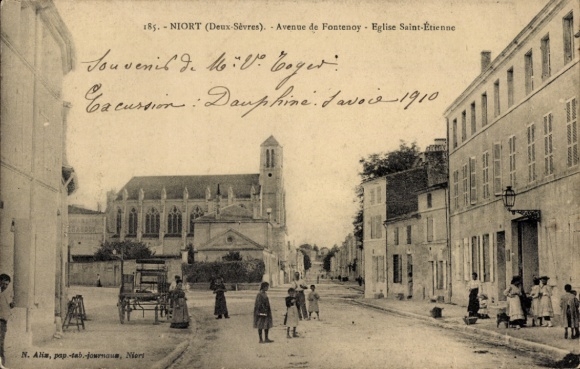 185. - NIORT (Deux-Sèvres). - Avenue de Fontenoy - Eglise Saint-Étienne
Souvenis de Mr Vr Toger.
Excursion : Dauphiné. Savoie 1910
N. Alix, pap.-tab.-journaux, Niort